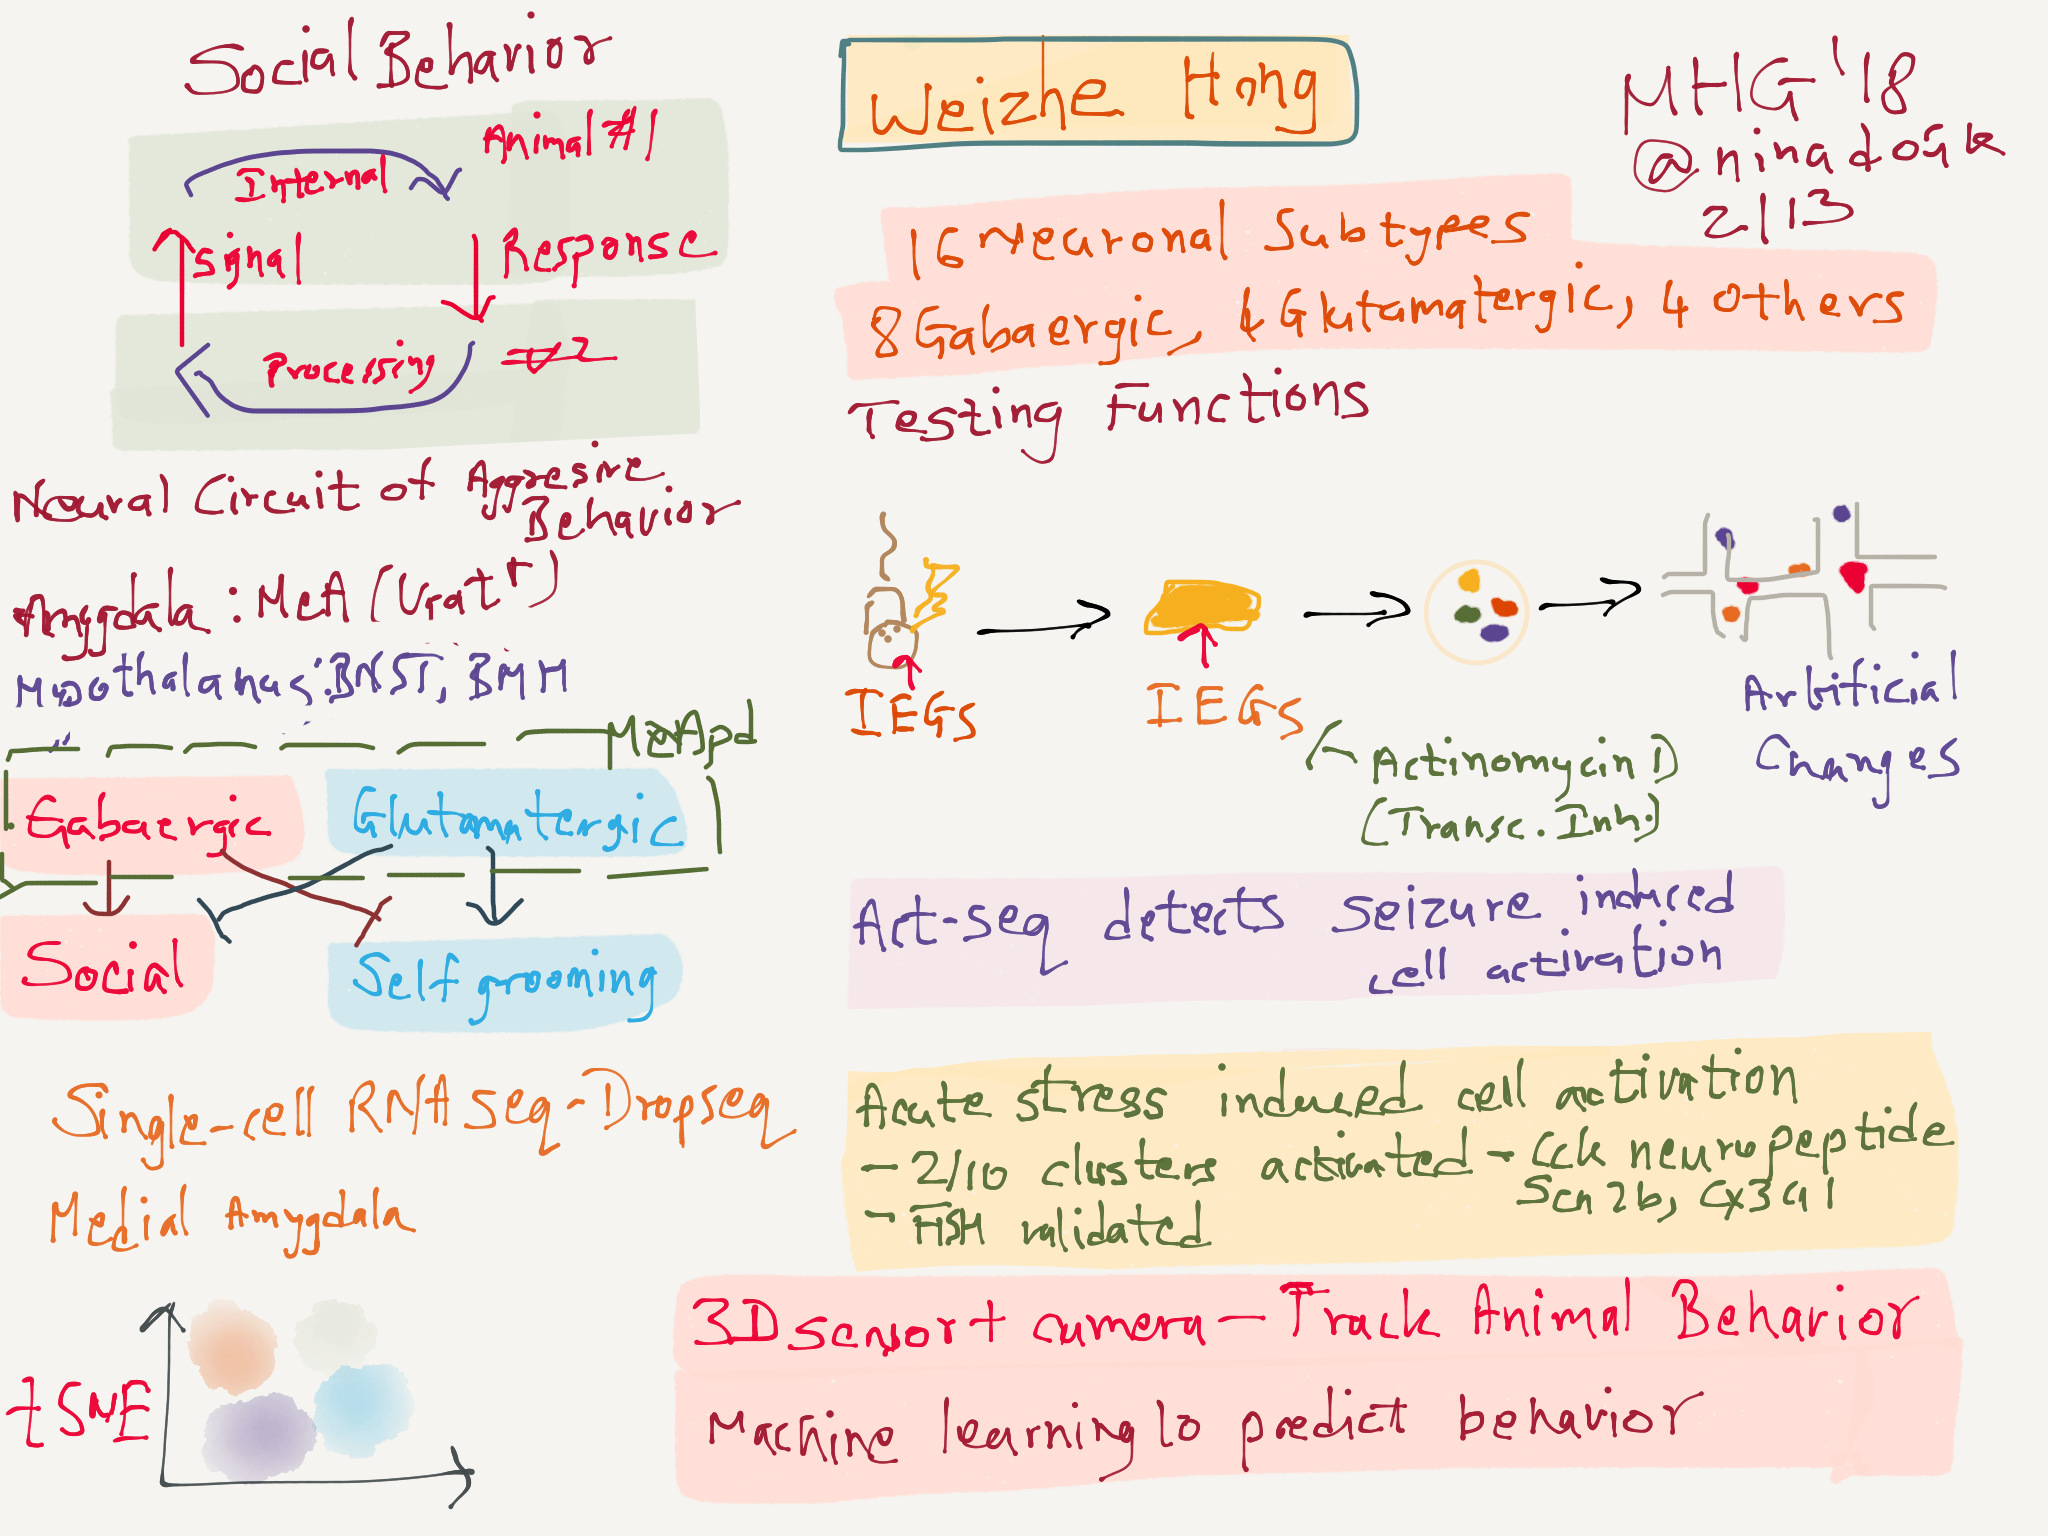 Social Behavior
Animal #1
Internal
signal
Response
Processing
#2
Neural Circuit of Aggresive
Behavior
Amygdala : MeA (Vgat+)
BNST, BMH
MeApd
Gabaergic
Glutamatergic
Social
Self grooming
Single-cell RNA seq - Dropseq
Medial Amygdala
tSNE
Weizhe Hong
MHG '18
@ninadoak
2/13
16 Neuronal Subtypes
8 Gabaergic, 4 Glutamatergic, 4 others
Testing Functions
IEGs
IEGs
Actinomycin D
(Transc. Inh.)
Artificial
Changes
Act-seq detects seizure induced
cell activation
Acute stress induced cell activation
- 2/10 clusters activated - Cck neuropeptide
Scn2b, Cx3cl1
- FISH validated
3D sensor + camera - Track Animal Behavior
Machine learning to predict behavior